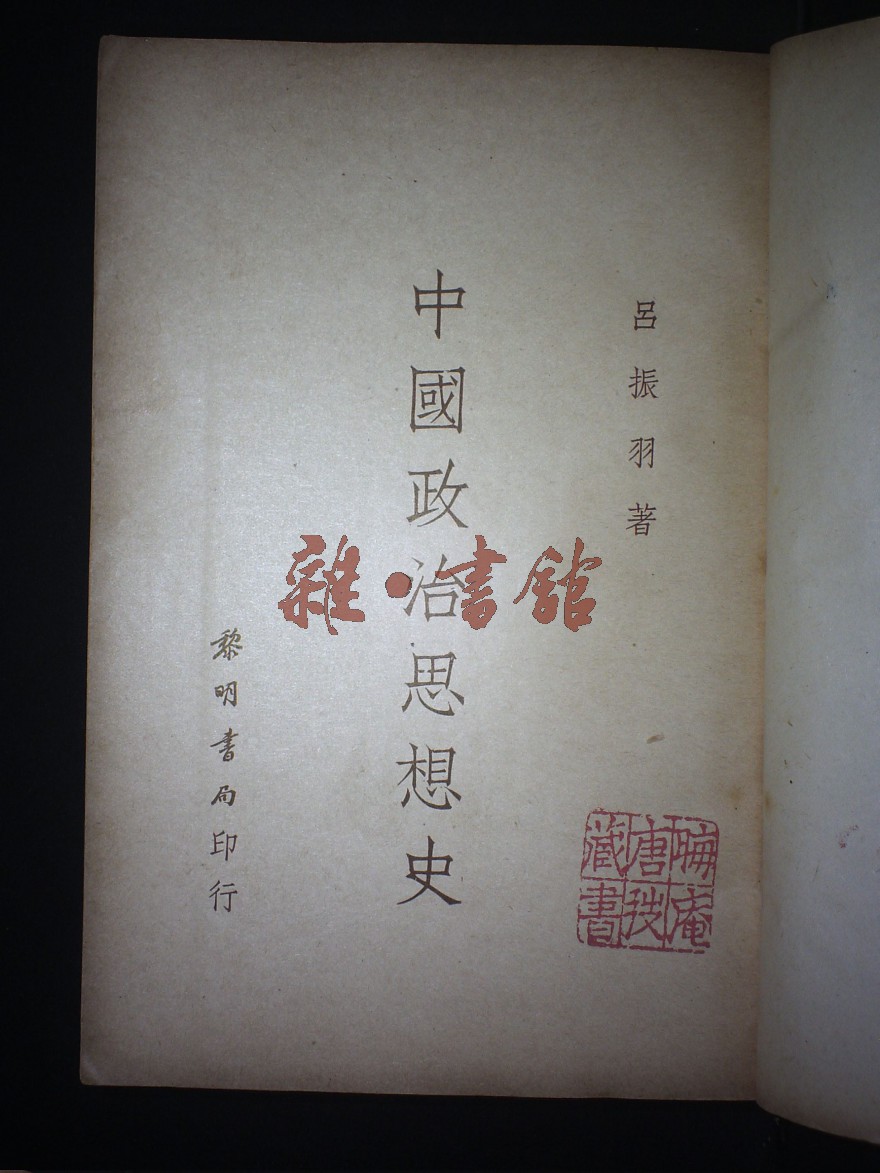 呂振羽著
中國政治思想史
黎明書局印行
雜·書館
晦庵
唐弢
藏書